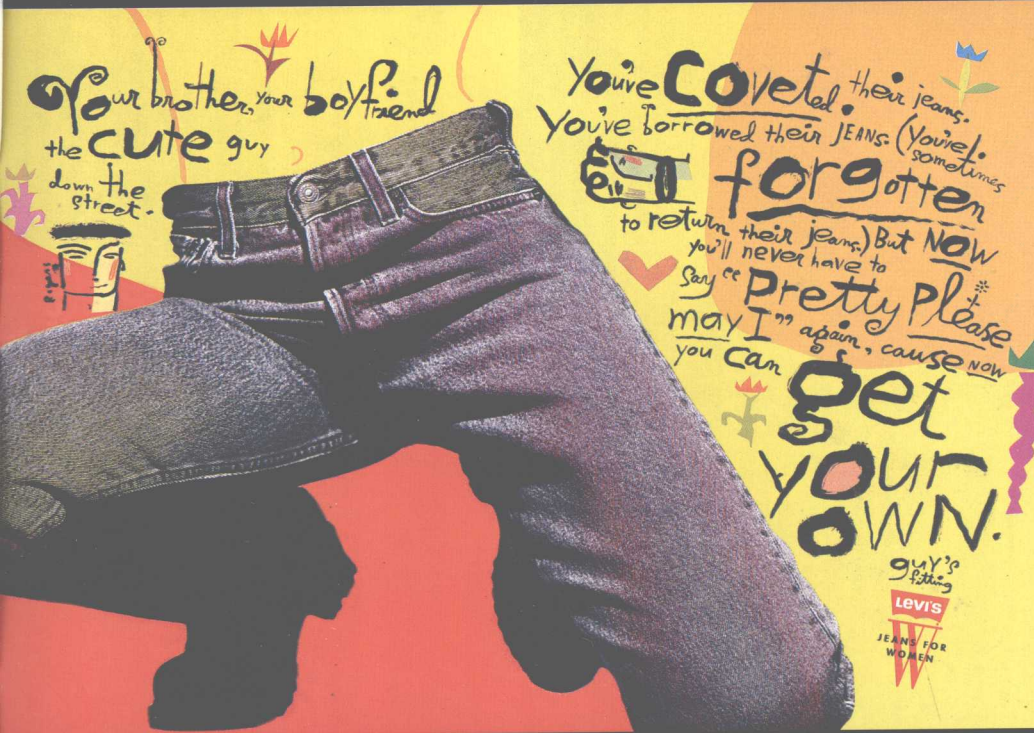 Your brother, your boyfriend
the cute guy
down the
street.
You've coveted their jeans.
You've borrowed their JEANS. (You've
sometimes
forgotten
to return their jeans.) But NOW
you'll never have to
Say "Pretty Please
may I" again, cause NOW
you can get
your
OWN.
guy's
fitting
LEVI'S
JEANS FOR
WOMEN